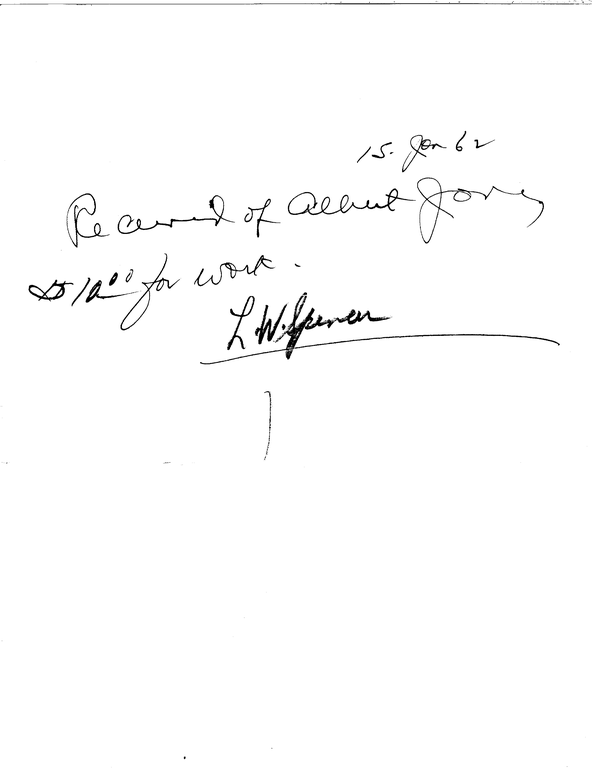 15. Jan 62
Received of Albert Jones
$10.00 for work.
L.W. Spencer